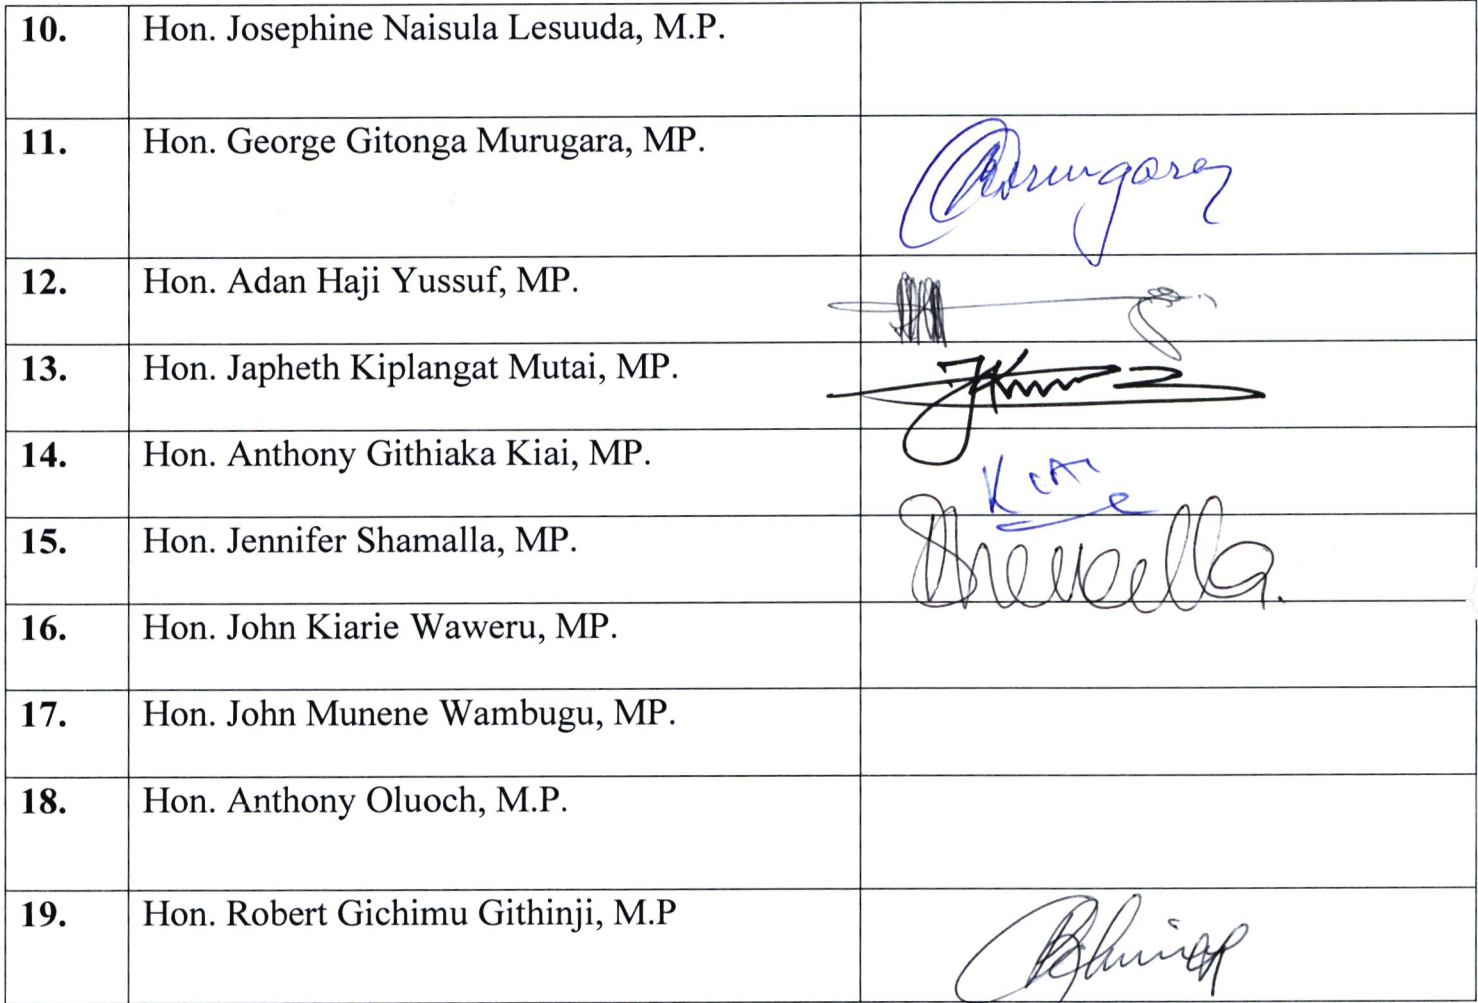 10. Hon. Josephine Naisula Lesuuda, M.P.
11. Hon. George Gitonga Murugara, MP.
12. Hon. Adan Haji Yussuf, MP.
13. Hon. Japheth Kiplangat Mutai, MP.
14. Hon. Anthony Githiaka Kiai, MP. KIAI
15. Hon. Jennifer Shamalla, MP.
16. Hon. John Kiarie Waweru, MP.
17. Hon. John Munene Wambugu, MP.
18. Hon. Anthony Oluoch, M.P.
19. Hon. Robert Gichimu Githinji, M.P